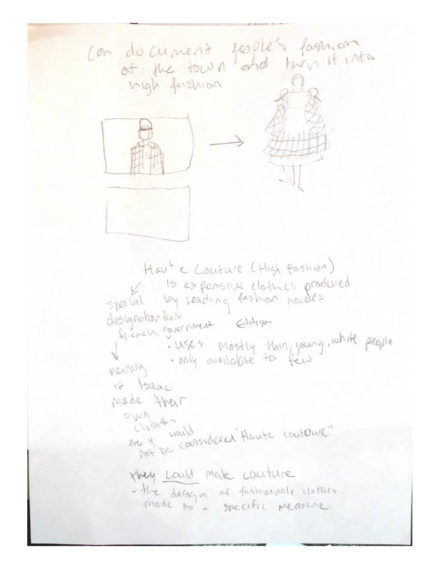 Can document people's fashion
of the town and turn it into
high fashion
Haute Couture (High Fashion)
is expensive clothes produced
by leading fashion houses
special
designation from
french government
Elitism
• uses mostly thin, young, white people
• only available to few
meaning
if Isaac
made their
own
clothes
they would
not be considered "Haute couture"
they could make couture
- the design of fashionable clothes
made to a specific measure